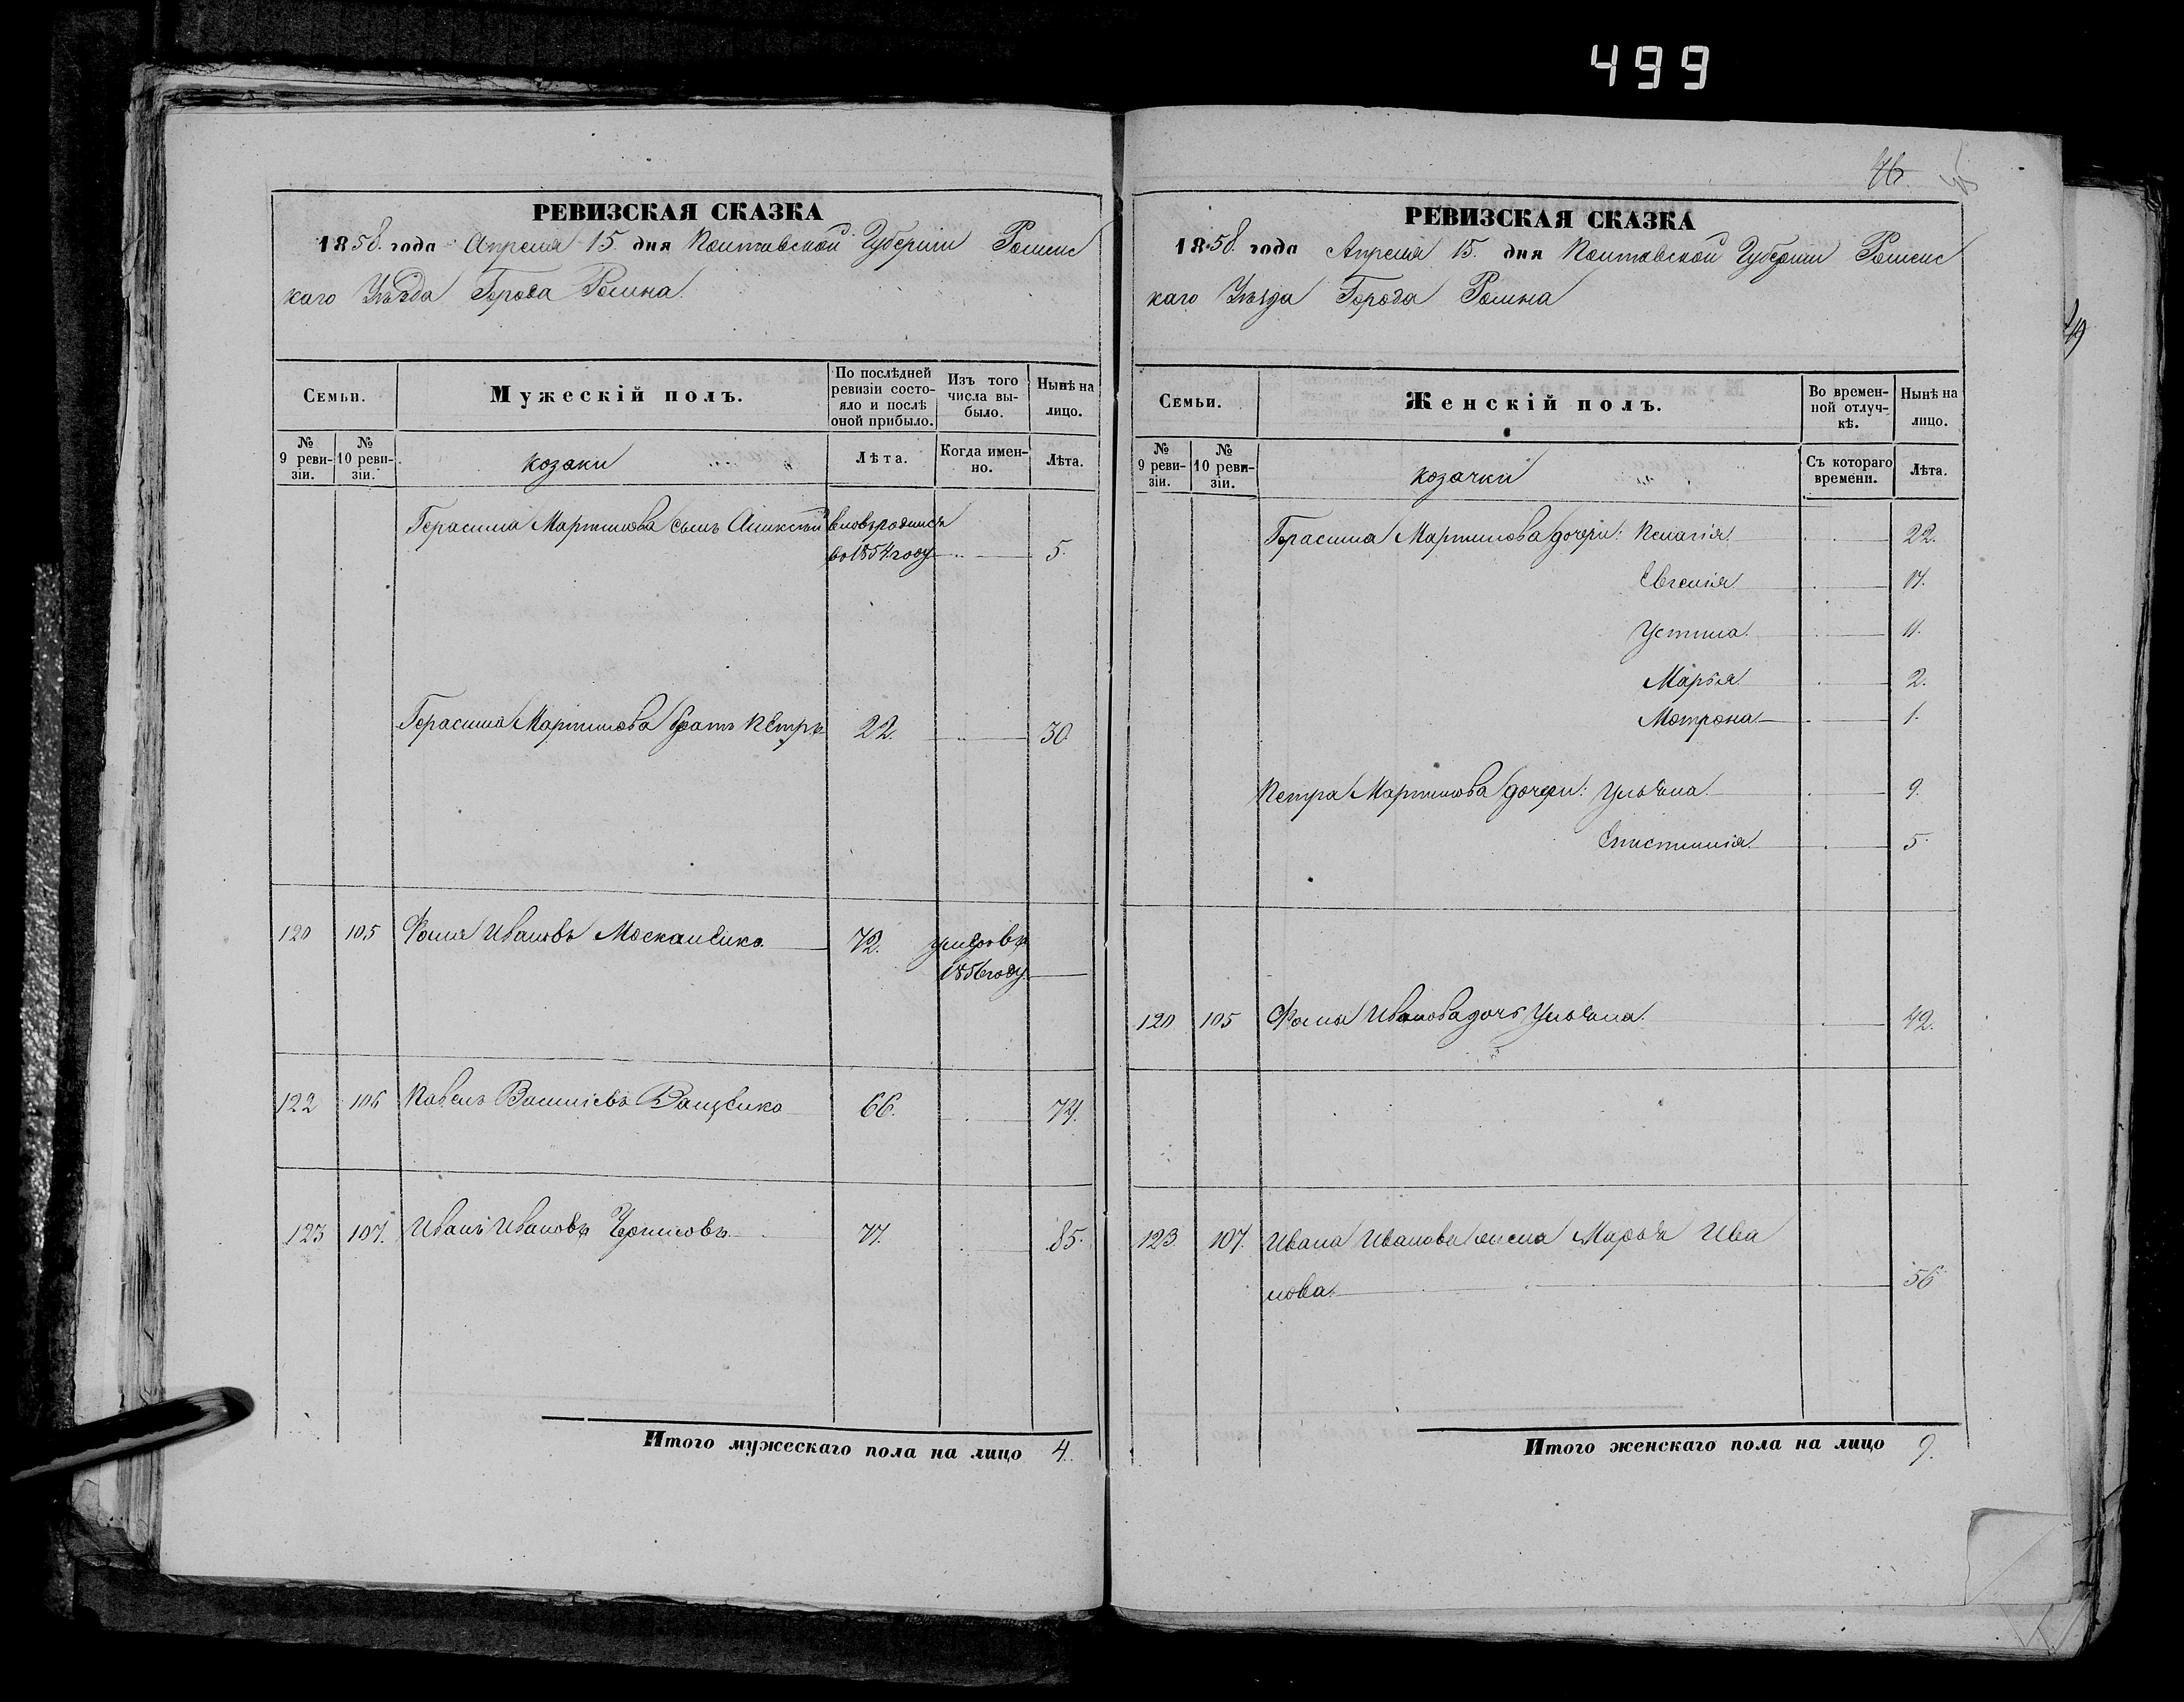 499
РЕВИЗСКАЯ СКАЗКА
1858 года Апреля 15 дня Полтавской Губернии Роменс
каго Уѣзда Города Ромна.
Семьи.
Мужескій полъ.
По послѣдней ревизіи состояло и послѣ оной прибыло.
Изъ того числа выбыло.
Нынѣ на лицо.
№ 9 ревизіи.
№ 10 ревизіи.
козаки
Лѣта.
Когда именно.
Лѣта.
Герасима Мартинова сынъ Алексѣй вновьродился
во 1854 году 5.
Герасима Мартинова братъ Петръ 22. 30
120 105 Фома Ивановъ Москаленко 72. умеръ въ
1856 году
122 106 Павелъ Васильевъ 66. 74.
123 107. Иванъ Ивановъ 77. 85.
Итого мужескаго пола на лицо 4.
46.
РЕВИЗСКАЯ СКАЗКА
1858 года Апреля 15. дня Полтавской Губернии Роменс
каго Уѣзда Города Ромна
Семьи.
Женскій полъ.
Во временной отлучкѣ.
Нынѣ на лицо.
№ 9 ревизіи.
№ 10 ревизіи.
козачки
Съ котораго времени.
Лѣта.
Герасима Мартинова дочери: Пелагія 22.
Евгенія 17.
Устина 11.
Марья 2.
Мотрона 1.
Петра Мартинова дочери: Ульяна 9.
Епистимія 5.
120 105 Фомы Иванова дочь Ульяна. 42.
123. 107. Ивана Иванова жена Марья Ива
нова. 56
Итого женскаго пола на лицо 9.
49